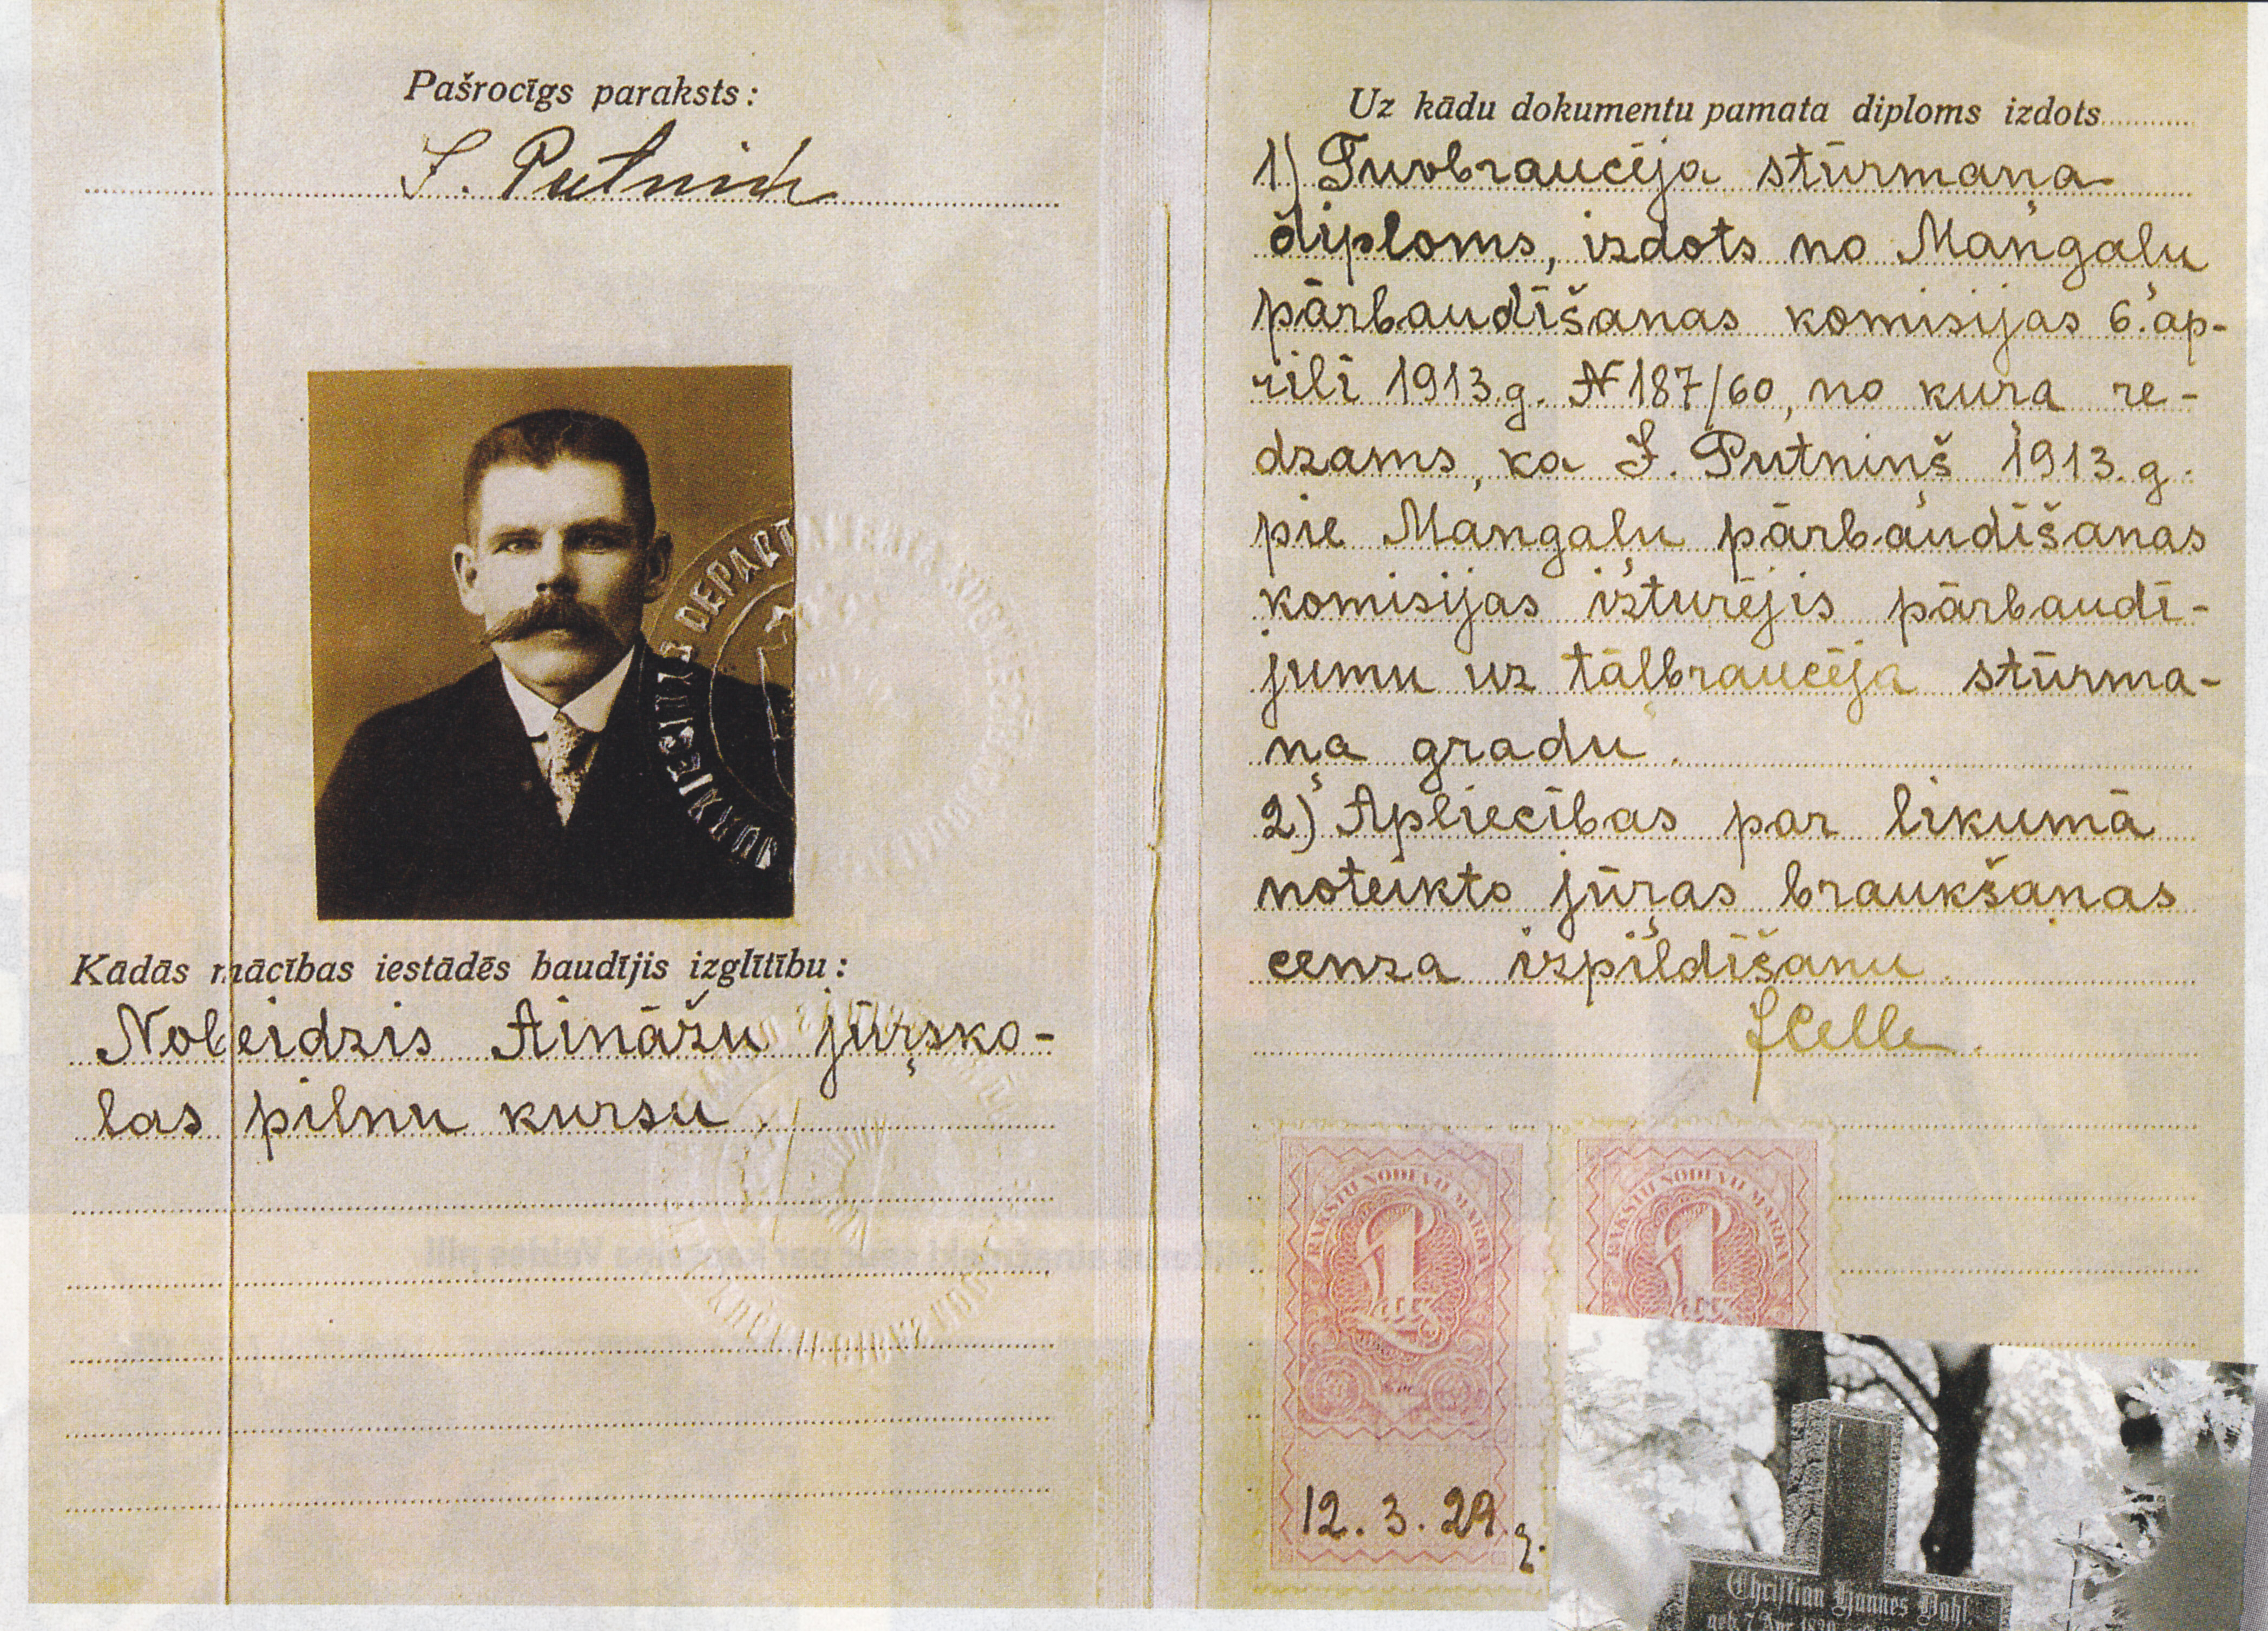 Pašrocīgs paraksts:
J. Putnin
Kādās mācības iestādēs baudījis izglītību:
Nobeidzis Ainažu jūŗsko-
las pilnu kursu.
Uz kādu dokumentu pamata diploms izdots
1) Tuvbraucēja stūrmaņa
diploms, izdots no Mangaļu
pārbaudīšanas komisijas 6. ap-
rilī 1913.g. № 187/60, no kuŗa re-
dzams, ka J. Putniņš 1913.g.
pie Mangaļu pārbaudīšanas
komisijas izturējis pārbaudī-
jumu uz tāļbraucēja stūrma-
ņa gradu.
2) Apliecības par likumā
noteikto jūŗas braukšanas
cenza izpildīšanu.
JCelle.
RAKSTU NODEVU MARKA
1
RAKSTU NODEVU MARKA
1
12. 3. 29 g.
Christian Hannes Dahl.
geb. 7 Apr.